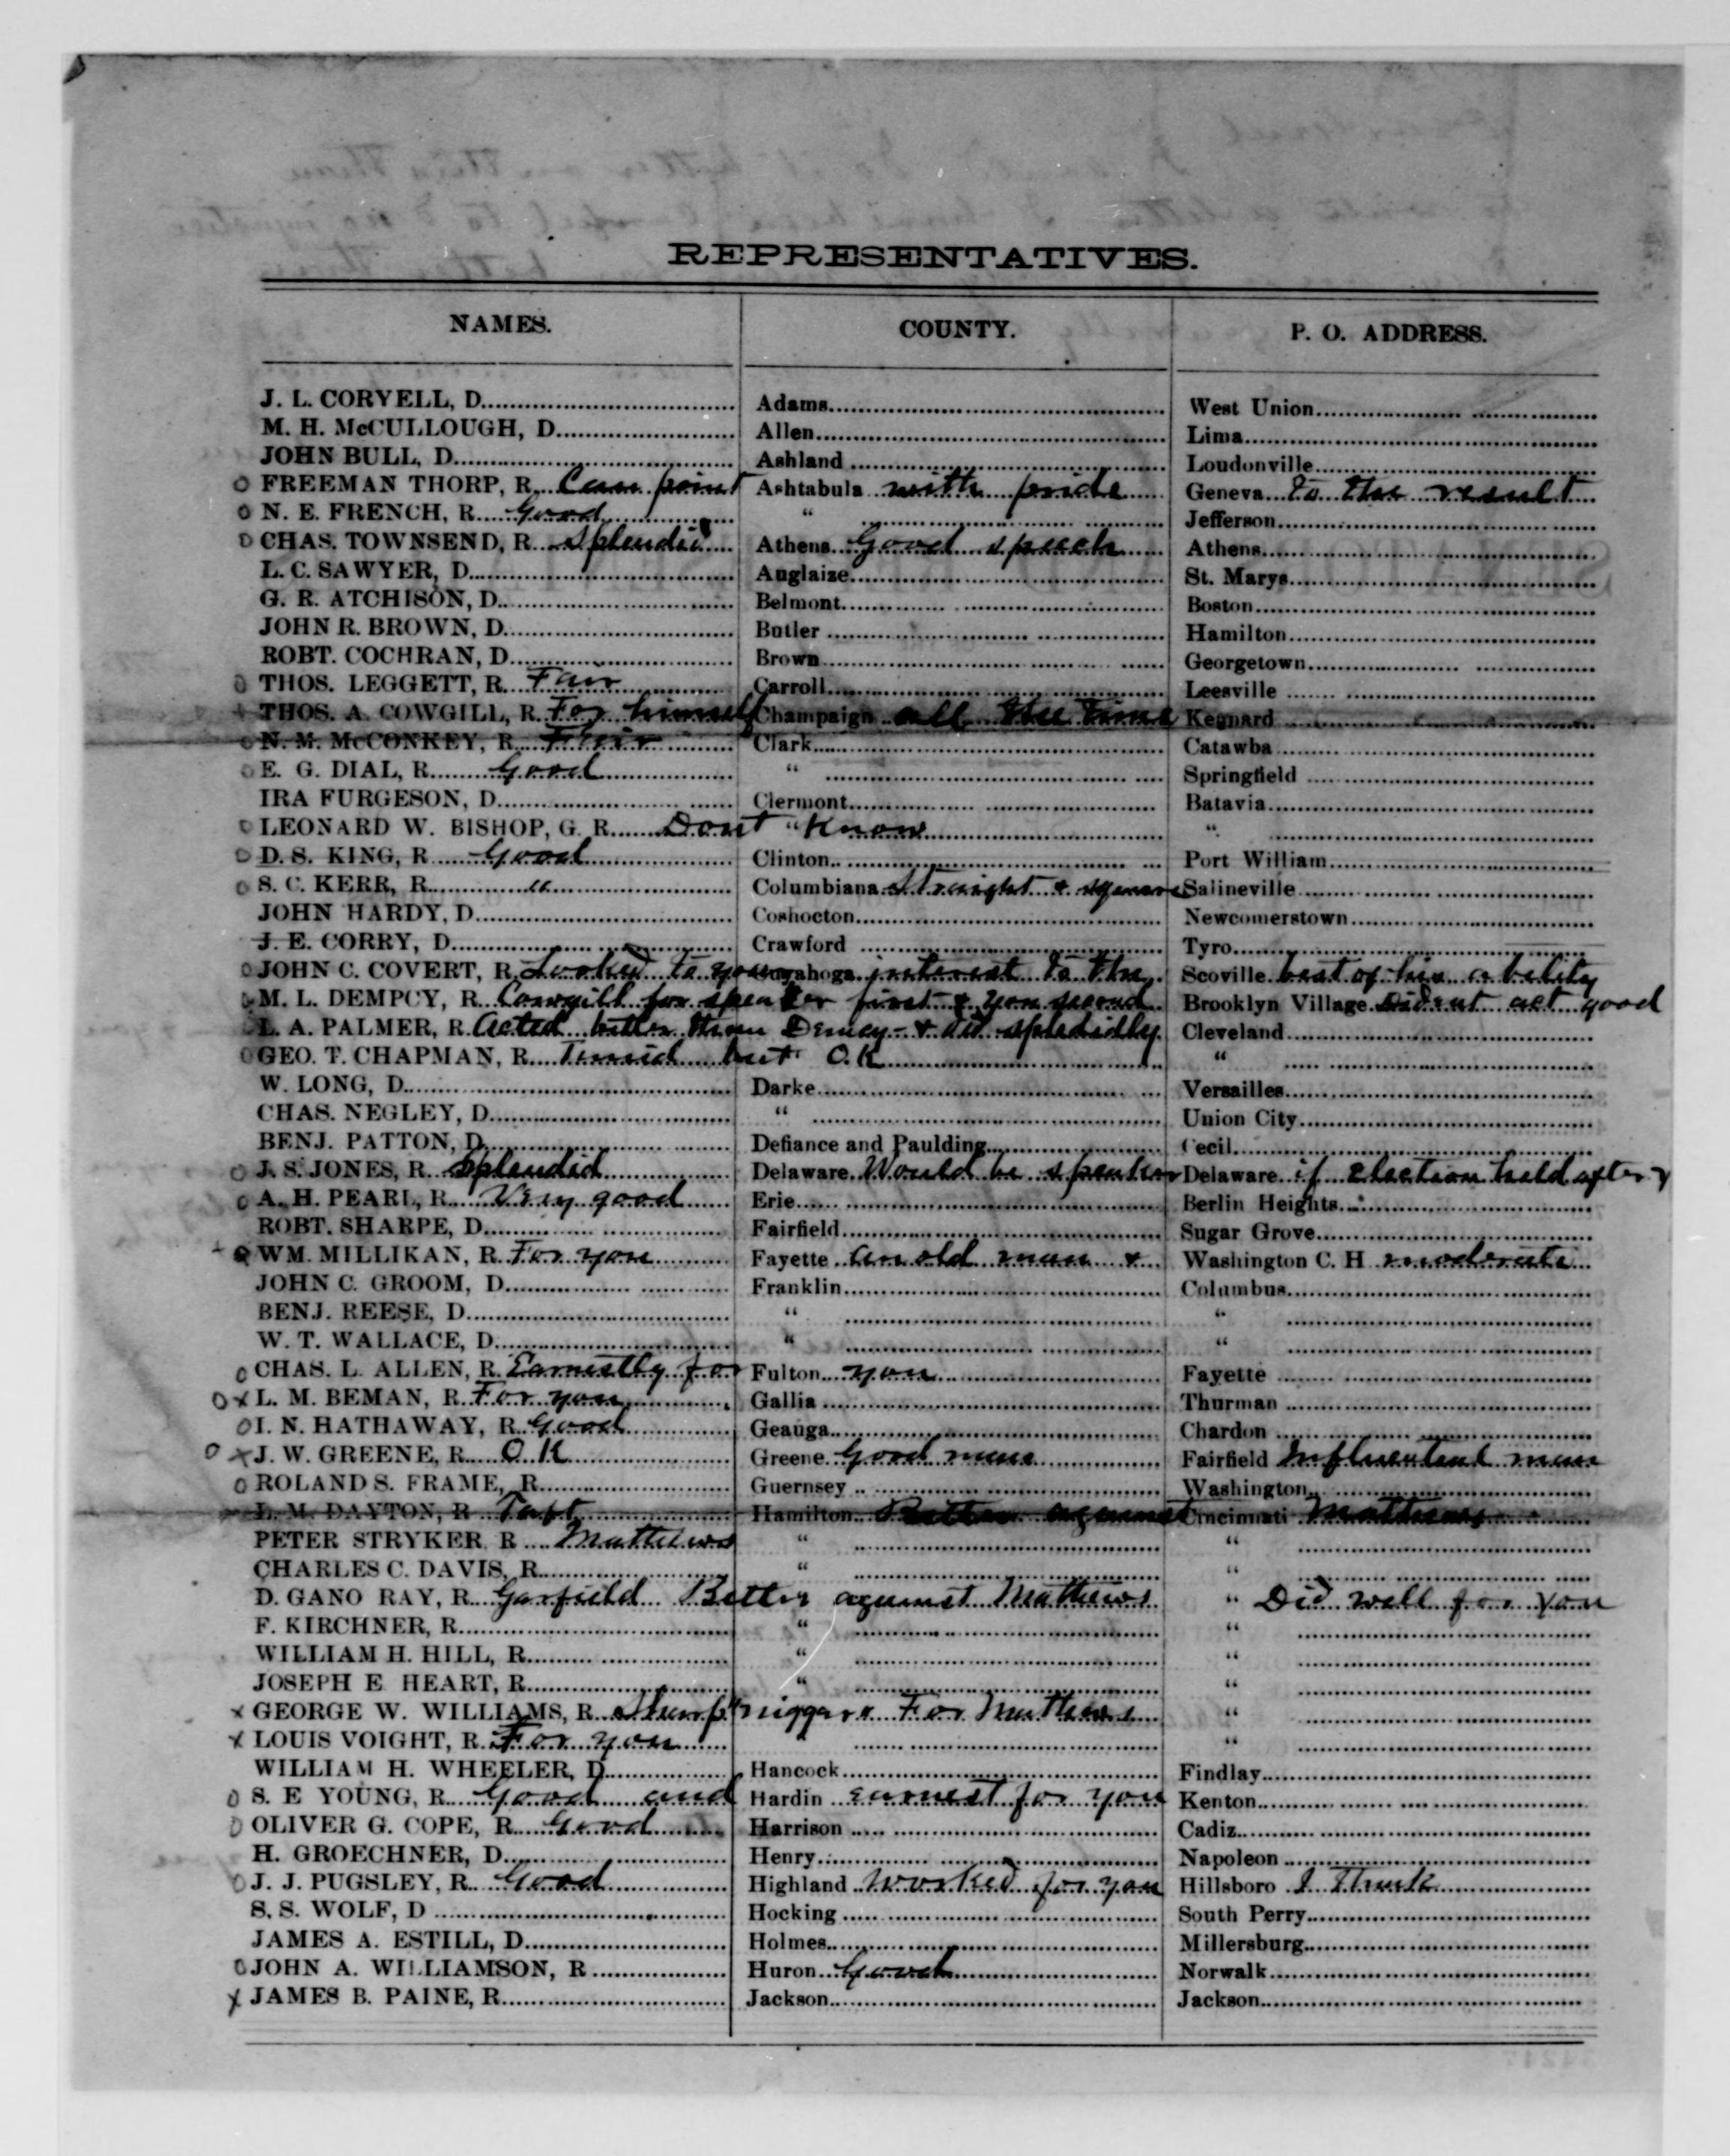 REPRESENTATIVES.
NAMES. COUNTY. P. O. ADDRESS.
J. L. CORYELL, D. Adams West Union
M. H. McCULLOUGH, D. Allen Lima
JOHN BULL, D. Ashland Loudonville
O FREEMAN THORP, R. Can point Ashtabula with pride Geneva to the result
O N. E. FRENCH, R. Good “ Jefferson
O CHAS. TOWNSEND, R. Splendid Athens Good speech Athens
L. C. SAWYER, D. Auglaize St. Marys
G. R. ATCHISON, D. Belmont Boston
JOHN R. BROWN, D. Butler Hamilton
ROBT. COCHRAN, D. Brown Georgetown
O THOS. LEGGETT, R. Fair Carroll Leesville
THOS. A. COWGILL, R. For himself Champaign all the time Kennard
O N. M. McCONKEY, R. Fair Clark Catawba
O E. G. DIAL, R. Good “ Springfield
IRA FURGESON, D. Clermont Batavia
O LEONARD W. BISHOP, G. R. Dont “ Know “
O D. S. KING, R. Good Clinton Port William
O S. C. KERR, R. " Columbiana Straight & square Salineville
JOHN HARDY, D. Coshocton Newcomerstown
J. E. CORRY, D. Crawford Tyro
O JOHN C. COVERT, R. Looked to your Cuyahoga interest to the Scoville best of his ability
M. L. DEMPCY, R. Cowgill for speaker first & you second Brooklyn Village Did'nt act good
L. A. PALMER, R. Acted better than Demcy & did spledidly Cleveland
O GEO. T. CHAPMAN, R. Timid but O.K “
W. LONG, D. Darke Versailles
CHAS. NEGLEY, D. “ Union City
BENJ. PATTON, D. Defiance and Paulding Cecil
O J. S. JONES, R. Splendid Delaware Would be speaker Delaware if election held after
O A. H. PEARL, R. Very good Erie Berlin Heights
ROBT. SHARPE, D. Fairfield Sugar Grove
WM. MILLIKAN, R. For you Fayette an old man & Washington C. H moderate
JOHN C. GROOM, D. Franklin Columbus
BENJ. REESE, D. “ “
W. T. WALLACE, D. “ “
O CHAS. L. ALLEN, R. Earnestly for Fulton you Fayette
O x L. M. BEMAN, R. For you Gallia Thurman
O I. N. HATHAWAY, R. Good Geauga Chardon
O x J. W. GREENE, R. O K Greene Good man Fairfield Influential man
O ROLAND S. FRAME, R. Guernsey Washington
L. M. DAYTON, R Taft Hamilton Bitter against Cincinnati Mathews
PETER STRYKER R Mathews “ “
CHARLES C. DAVIS, R. “ “
D. GANO RAY, R. Garfield Bitter against Mathews “ Did well for you
F. KIRCHNER, R. “ “
WILLIAM H. HILL, R. “ “
JOSEPH E HEART, R. “ “
x GEORGE W. WILLIAMS, R. Stump niggar For Mathews “
x LOUIS VOIGHT, R. For you “
WILLIAM H. WHEELER, D. Hancock Findlay
O S. E YOUNG, R. Good and Hardin earnest for you Kenton
O OLIVER G. COPE, R. Good Harrison Cadiz
H. GROECHNER, D. Henry Napoleon
O J. J. PUGSLEY, R. Good Highland Worked for you Hillsboro I Think
S. S. WOLF, D Hocking South Perry
JAMES A. ESTILL, D. Holmes Millersburg
O JOHN A. WILLIAMSON, R Huron Good Norwalk
x JAMES B. PAINE, R. Jackson Jackson